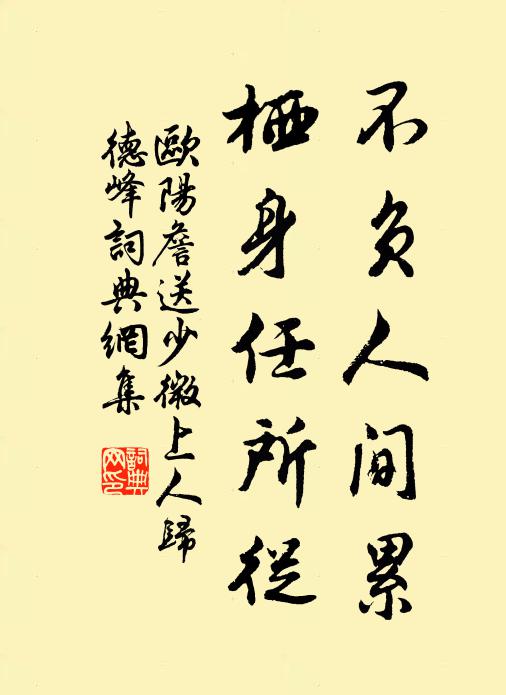 不負人間累
栖身任所從
歐陽詹送少微上人歸
德峰詞典網集
詞典网印